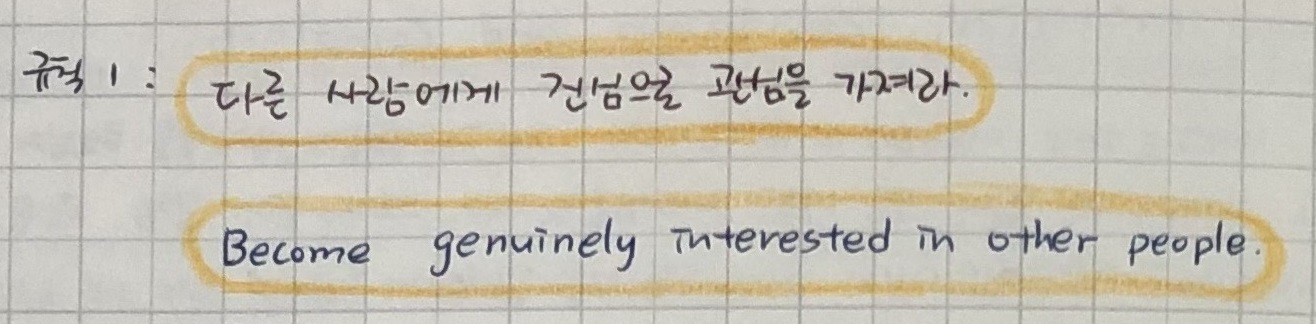 규칙 1 : 다른 사람에게 진심으로 관심을 가져라.
Become genuinely interested in other people.